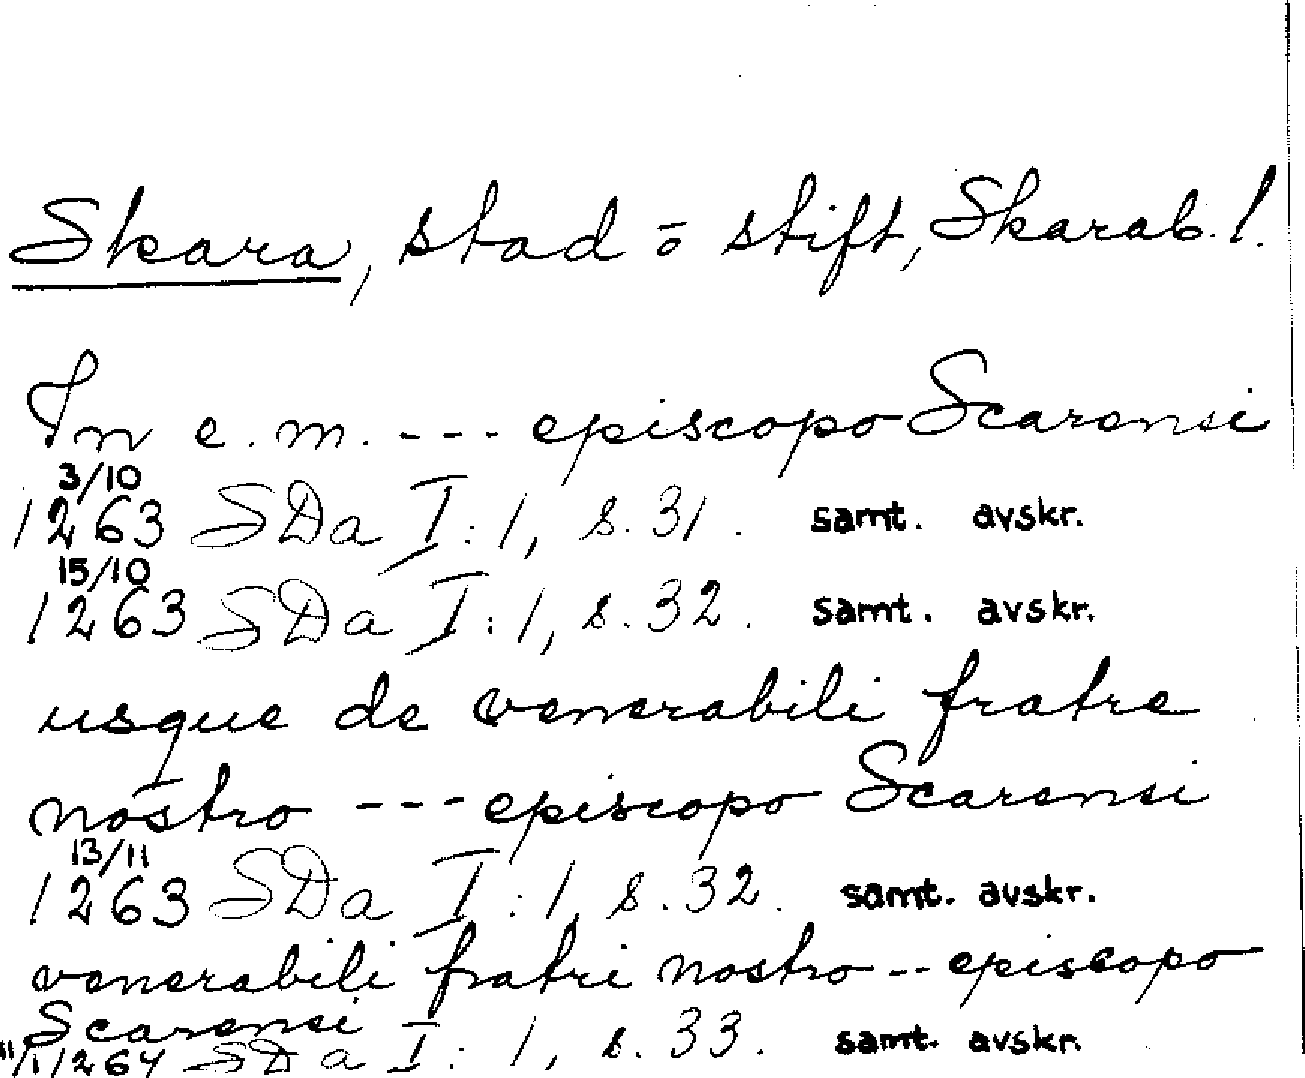 Skara, stad o stift, Skarab. l.
In e. m. --- episcopo Scarensi
3/10
1263 SDa I:1, s. 31. samt. avskr.
15/10
1263 SDa I:1, s. 32. samt. avskr.
usque de venerabili fratre
nostro --- episcopo Scarensi
13/11
1263 SDa I:1, s. 32. samt. avskr.
venerabili fratri nostro -- episcopo
Scarensi
11/1 1264 SDa I:1, s. 33. samt. avskr.